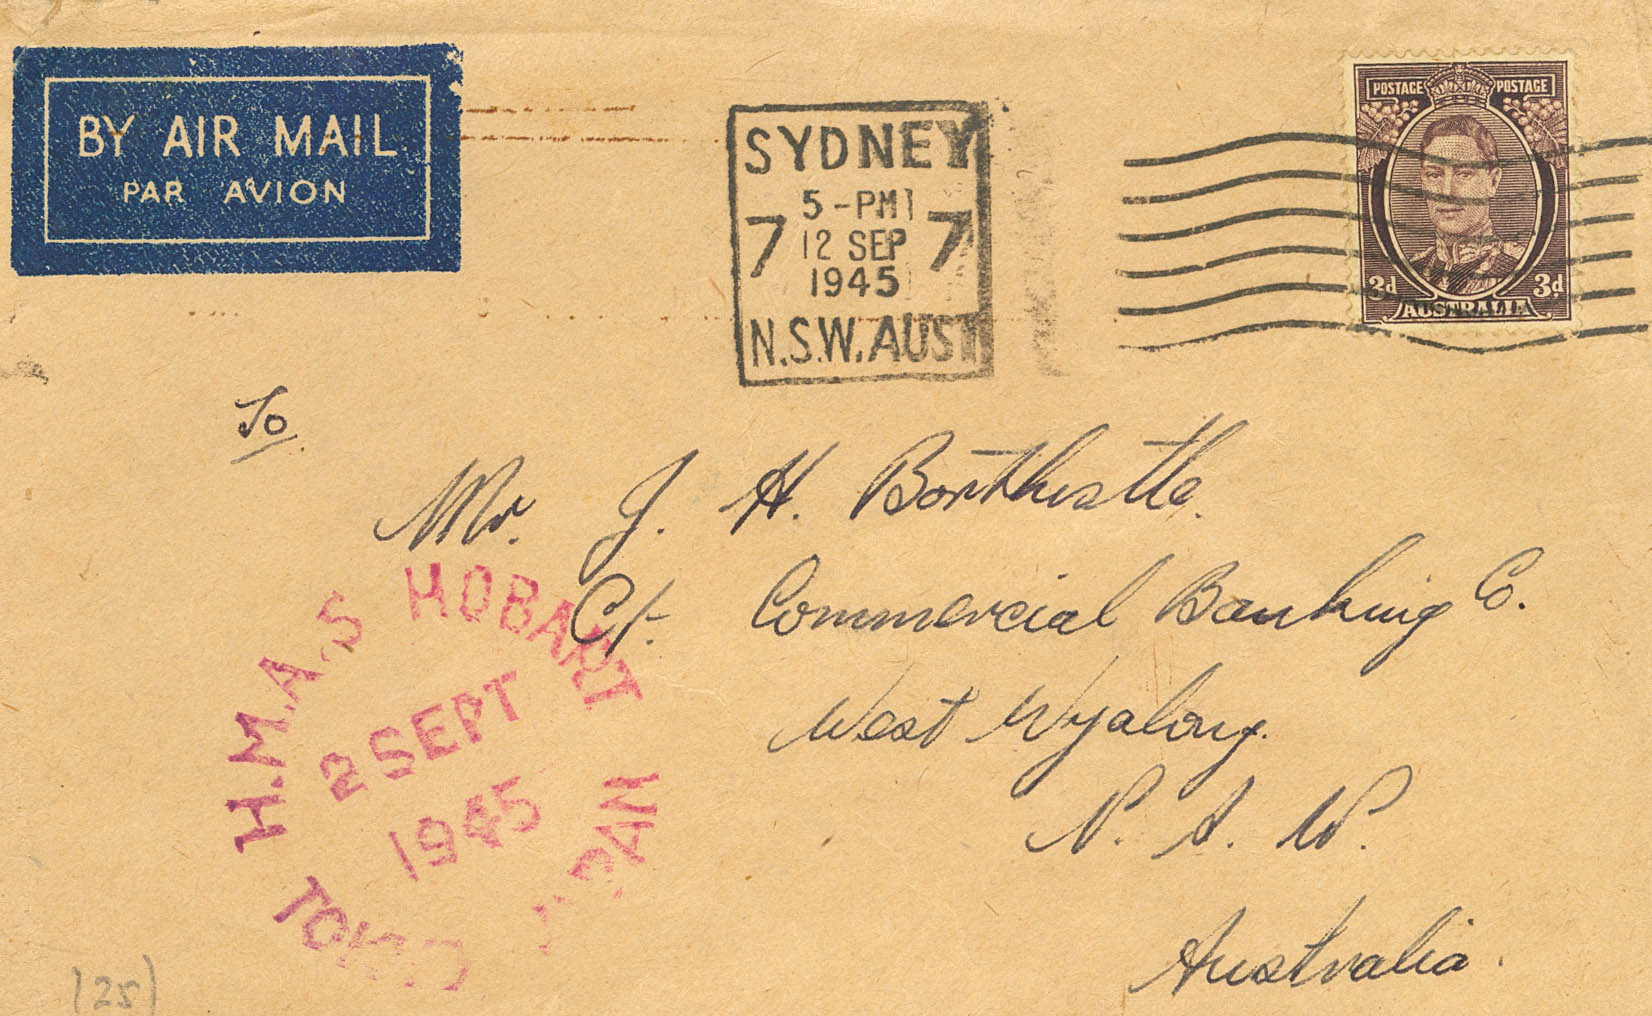 BY AIR MAIL
PAR AVION
SYDNEY
5-PM
7 12 SEP 7
1945
N.S.W. AUST
POSTAGE POSTAGE
3d 3d
AUSTRALIA
To
Mr. J. H. Borthistle.
C/- Commercial Banking Co.
West Wyalong.
N. S. W.
Australia.
H.M.A.S HOBART
2 SEPT
1945
TOKYO JAPAN
(25)